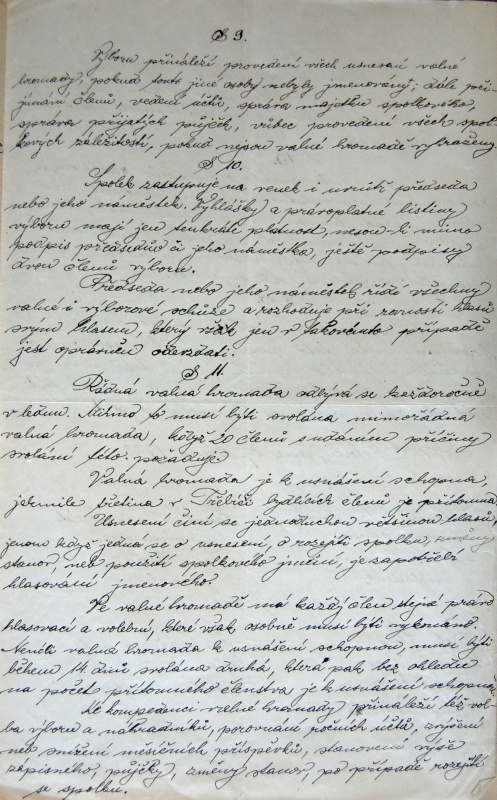 § 9.
Výboru přináleží provedení všech usnesení valné
hromady, pokud touto jiné osoby nebyly jmenovány; dále při-
jímání členů, vedení účtů, správa majetku spolkového,
správa přijatých půjček, vůbec provedení všech spol-
kových záležitostí, pokud nejsou valné hromadě vyhraženy.
§ 10.
Spolek zastupuje na venek i uvnitř předseda
nebo jeho náměstek. Vyhlášky a právoplatné listiny
výboru mají jen tenkráte platnost, nesou-li mimo
podpis předsedův či jeho náměstka, ještě podpisy
dvou členů výboru.
Předseda nebo jeho náměstek řídí všechny
valné i výborové schůze a rozhoduje při rovnosti hlasů
svým hlasem, který však jen v takovémto případě
jest oprávněn odevzdati.
§ 11.
Řádná valná hromada odbývá se každoročně
v lednu. Mimo to musí býti svolána mimořádná
valná hromada, když 20 členů s udáním příčiny
svolání této požaduje.
Valná hromada je k usnášení schopna,
jakmile třetina v Třebíči bydlících členů je přítomna.
Usnesení činí se jednoduchou většinou hlasů,
jenom když jedná se o usnesení o rozejití spolku, změny
stanov, neb použití spolkového jmění, je zapotřebí
hlasování jmenového.
Ve valné hromadě má každý člen stejné právo
hlasovací a volební, které však osobně musí býti vykonáno.
Není-li valná hromada k usnášení schopnou, musí býti
během 14 dnů svolána druhá, která pak bez ohledu
na počet přítomného členstva je k usnášení schopna.
Ke kompetenci valné hromady přináleží též vol-
ba výboru a náhradníků, porovnání ročních účtů, zvýšení
neb snížení měsíčních příspěvků, stanovení výše
zápisného, půjčky, změny stanov, po případě rozejití
se spolku.